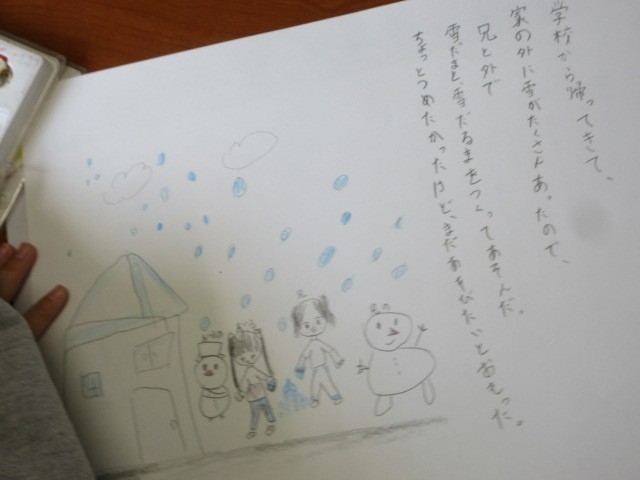 学校から帰ってきて、
家の外に雪がたくさんあったので、
兄と外で
雪だまと、雪だるまをつくってあそんだ。
ちょっとつめたかったけど、まだあそびたいとおもった。